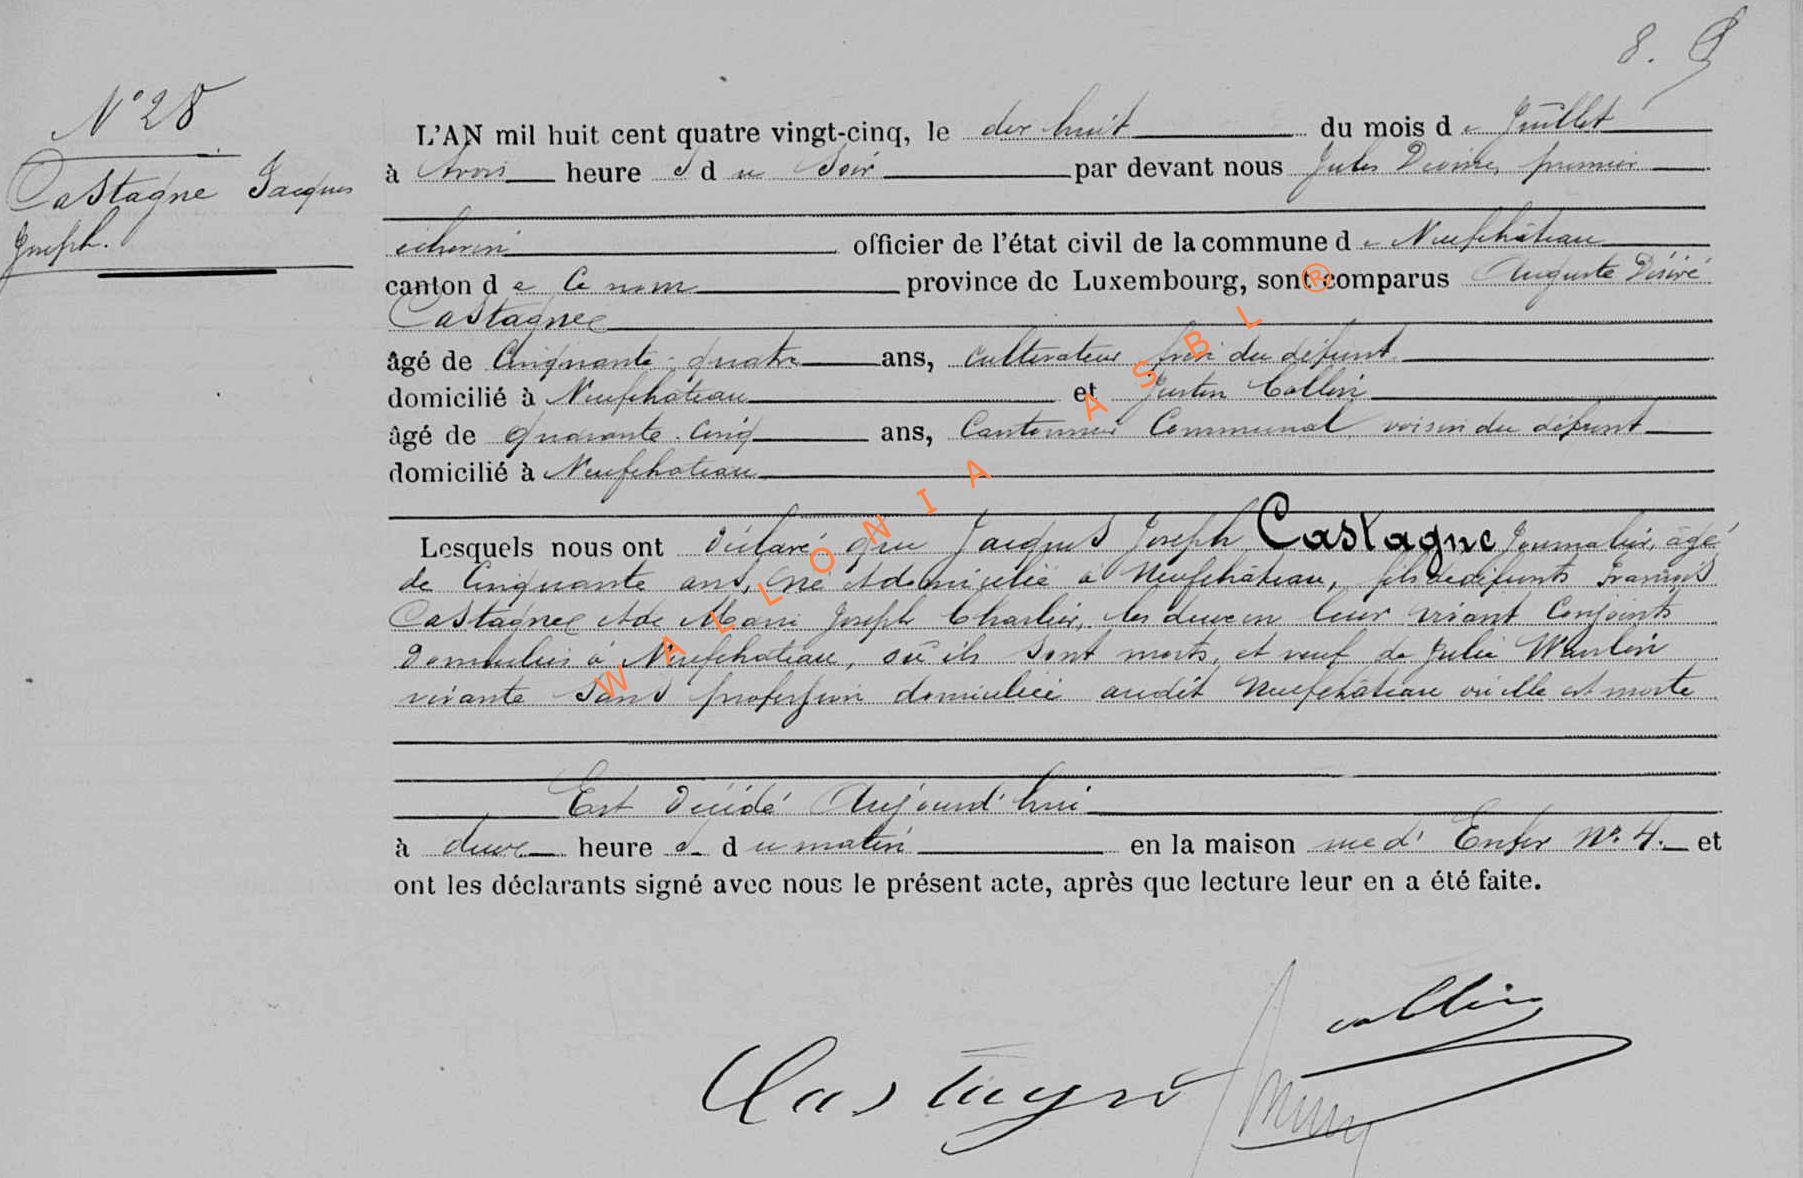 8.
N° 28
Castagne Jacques
Joseph.
L'AN mil huit cent quatre vingt-cinq, le dix huit du mois de Juillet
à trois heures du Soir par devant nous Jules premier
échevin officier de l'état civil de la commune de Neufchâteau
canton de Ce nom province de Luxembourg, sont comparus Auguste Désiré
Castagne
âgé de Cinquante-quatre ans, cultivateur frère du défunt
domicilié à Neufchâteau et Justin Collin
âgé de quarante-cinq ans, Cantonnier Communal, voisin du défunt
domicilié à Neufchâteau
Lesquels nous ont déclaré que Jacques Joseph Castagne Journalier, âgé
de Cinquante ans, né et domicilié à Neufchâteau, fils de défunts François
Castagne et de Marie Joseph Charlier, les deux en leur vivant Conjoints
Domiciliés à Neufchâteau, où ils sont morts, et veuf de Julie
vivante Sans profession domiciliée audit Neufchâteau où elle est morte
Est Décédé Aujourd'hui
à deux heures du matin en la maison rue d'Enfer N° 4. et
ont les déclarants signé avec nous le présent acte, après que lecture leur en a été faite.
Collin
Castagne
WALLONIA ASBL ®